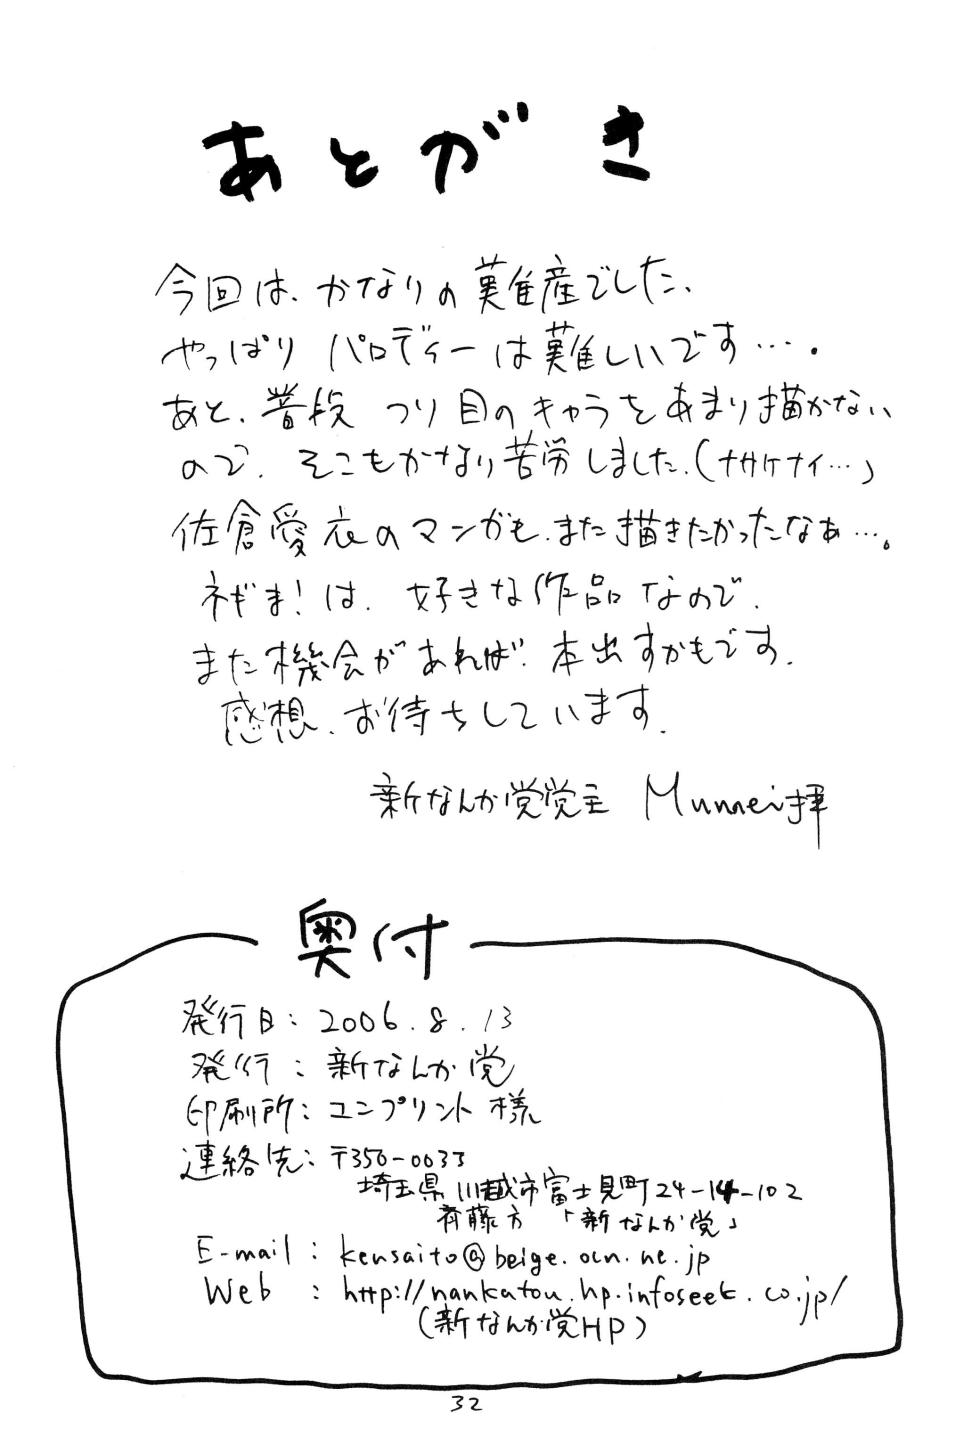 あとがき
今回は、かなりの難産でした、
やっぱり パロディーは難しいです….
あと、普段 つり目のキャラをあまり描かない
ので、そこもかなり苦労しました、(ナサケナイ…)
佐倉愛衣のマンガも、また描きたかったなぁ…。
ネギま!は、好きな作品なので、
また機会があれば、本出すかもです、
感想、お待ちしています、
新なんか党党主 Munmei拝
奥付
発行日: 2006.8.13
発行 : 新なんか党
印刷所: コンプリント様
連絡先: 〒350-0033
埼玉県川越市富士見町24-14-102
斉藤方 「新なんか党」
E-mail : kensaito@beige.ocn.ne.jp
Web : http://nankatou.hp.infoseek.co.jp/
(新なんか党HP)
32